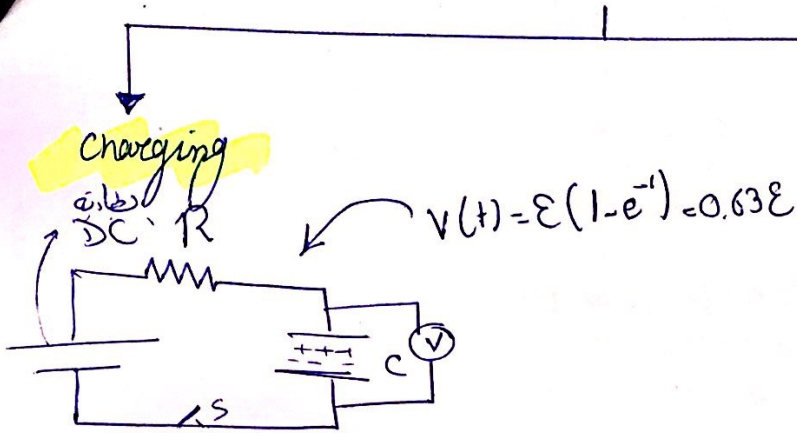 Charging
بطارية
DC R
V(t) = ε(1-e⁻¹) = 0.63ε
+++
C
V
S